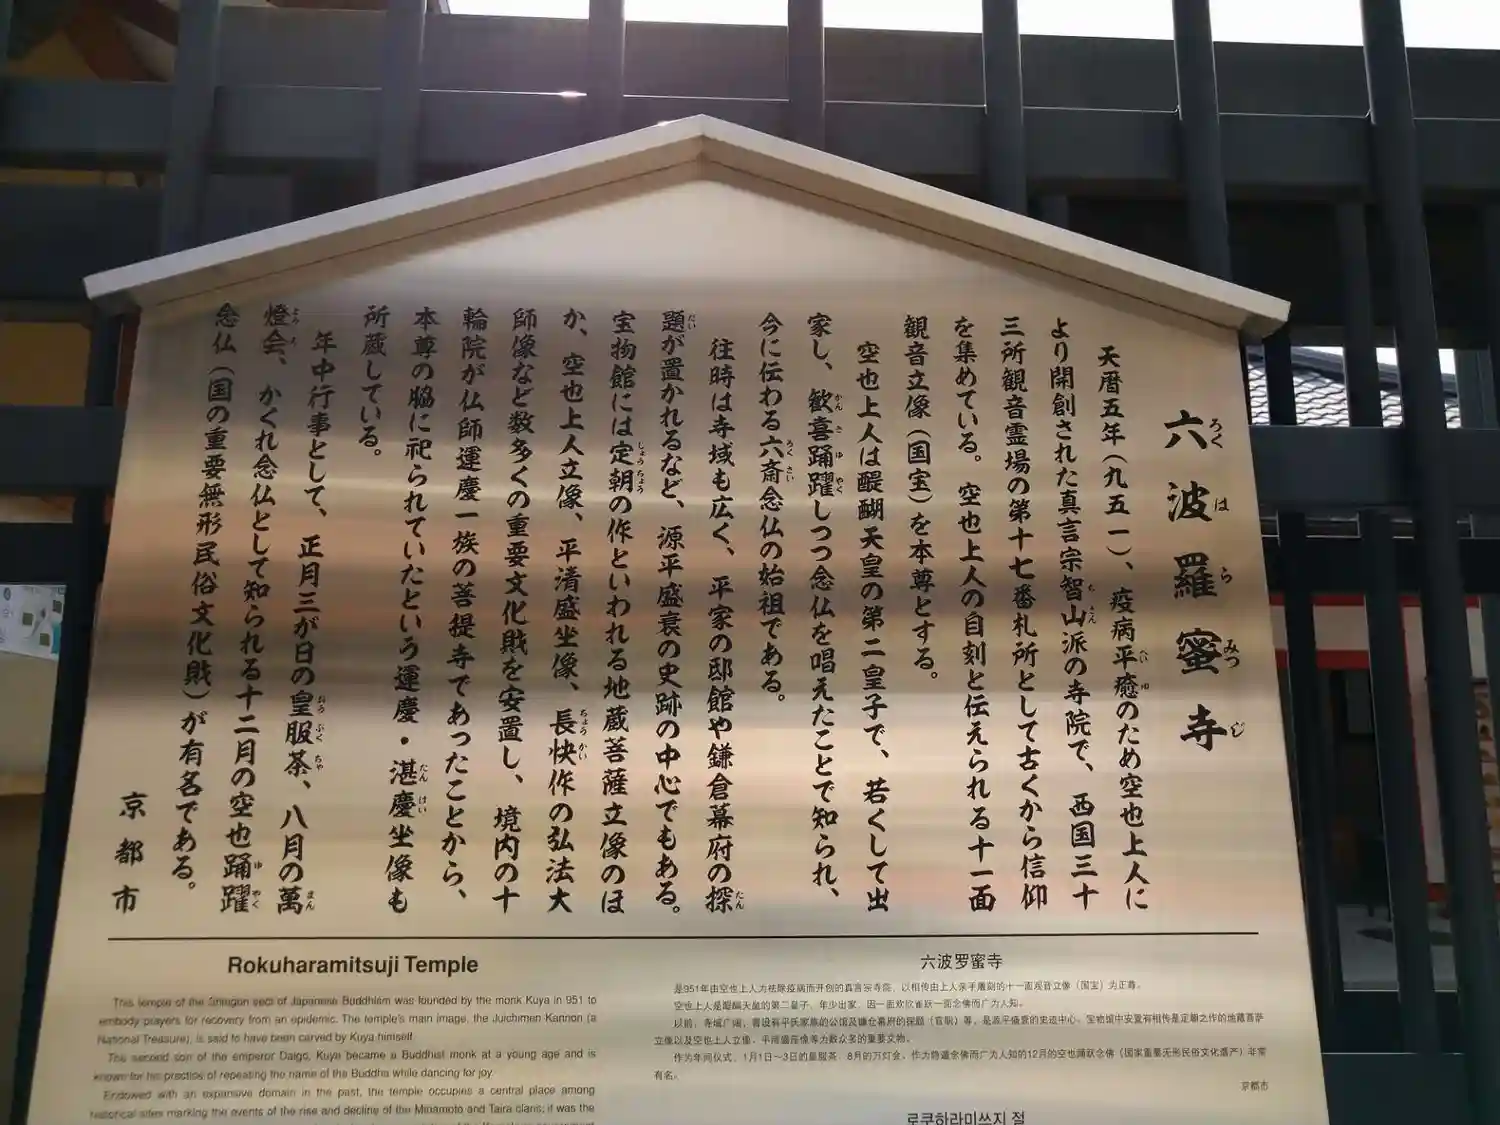 六波羅蜜寺
天暦五年(九五一)、疫病平癒のため空也上人に
より開創された真言宗智山派の寺院で、西国三十
三所観音霊場の第十七番札所として古くから信仰
を集めている。空也上人の自刻と伝えられる十一面
観音立像(国宝)を本尊とする。
空也上人は醍醐天皇の第二皇子で、若くして出
家し、歓喜踊躍しつつ念仏を唱えたことで知られ、
今に伝わる六斎念仏の始祖である。
往時は寺域も広く、平家の邸館や鎌倉幕府の探
題が置かれるなど、源平盛衰の史跡の中心でもある。
宝物館には定朝の作といわれる地蔵菩薩立像のほ
か、空也上人立像、平清盛坐像、長快作の弘法大
師像など数多くの重要文化財を安置し、境内の十
輪院が仏師運慶一族の菩提寺であったことから、
本尊の脇に祀られていたという運慶・湛慶坐像も
所蔵している。
年中行事として、正月三が日の皇服茶、八月の萬
燈会、かくれ念仏として知られる十二月の空也踊躍
念仏(国の重要無形民俗文化財)が有名である。
京都市
Rokuharamitsuji Temple
This temple of the Shingon sect of Japanese Buddhism was founded by the monk Kuya in 951 to
embody prayers for recovery from an epidemic. The temple's main image, the Juichimen Kannon (a
National Treasure), is said to have been carved by Kuya himself.
The second son of the emperor Daigo, Kuya became a Buddhist monk at a young age and is
known for his practice of repeating the name of the Buddha while dancing for joy.
Endowed with an expansive domain in the past, the temple occupies a central place among
historical sites marking the events of the rise and decline of the Minamoto and Taira clans; it was the
六波罗蜜寺
是951年由空也上人为祛除疫病而开创的真言宗寺院，以相传由上人亲手雕刻的十一面观音立像（国宝）为正尊。
空也上人是醍醐天皇的第二皇子，年少出家，因一面欢欣雀跃一面念佛而广为人知。
以前，寺域广阔，曾设有平氏家族的公馆及镰仓幕府的探题（官职）等，是源平盛衰的史迹中心。宝物馆中安置有相传是定朝之作的地藏菩萨
立像以及空也上人立像、平清盛座像等为数众多的重要文物。
作为年间仪式，1月1日～3日的皇服茶、8月的万灯会、作为隐遁念佛而广为人知的12月的空也踊跃念佛（国家重要无形民俗文化遗产）非常
有名。
京都市
로쿠하라미쓰지 절